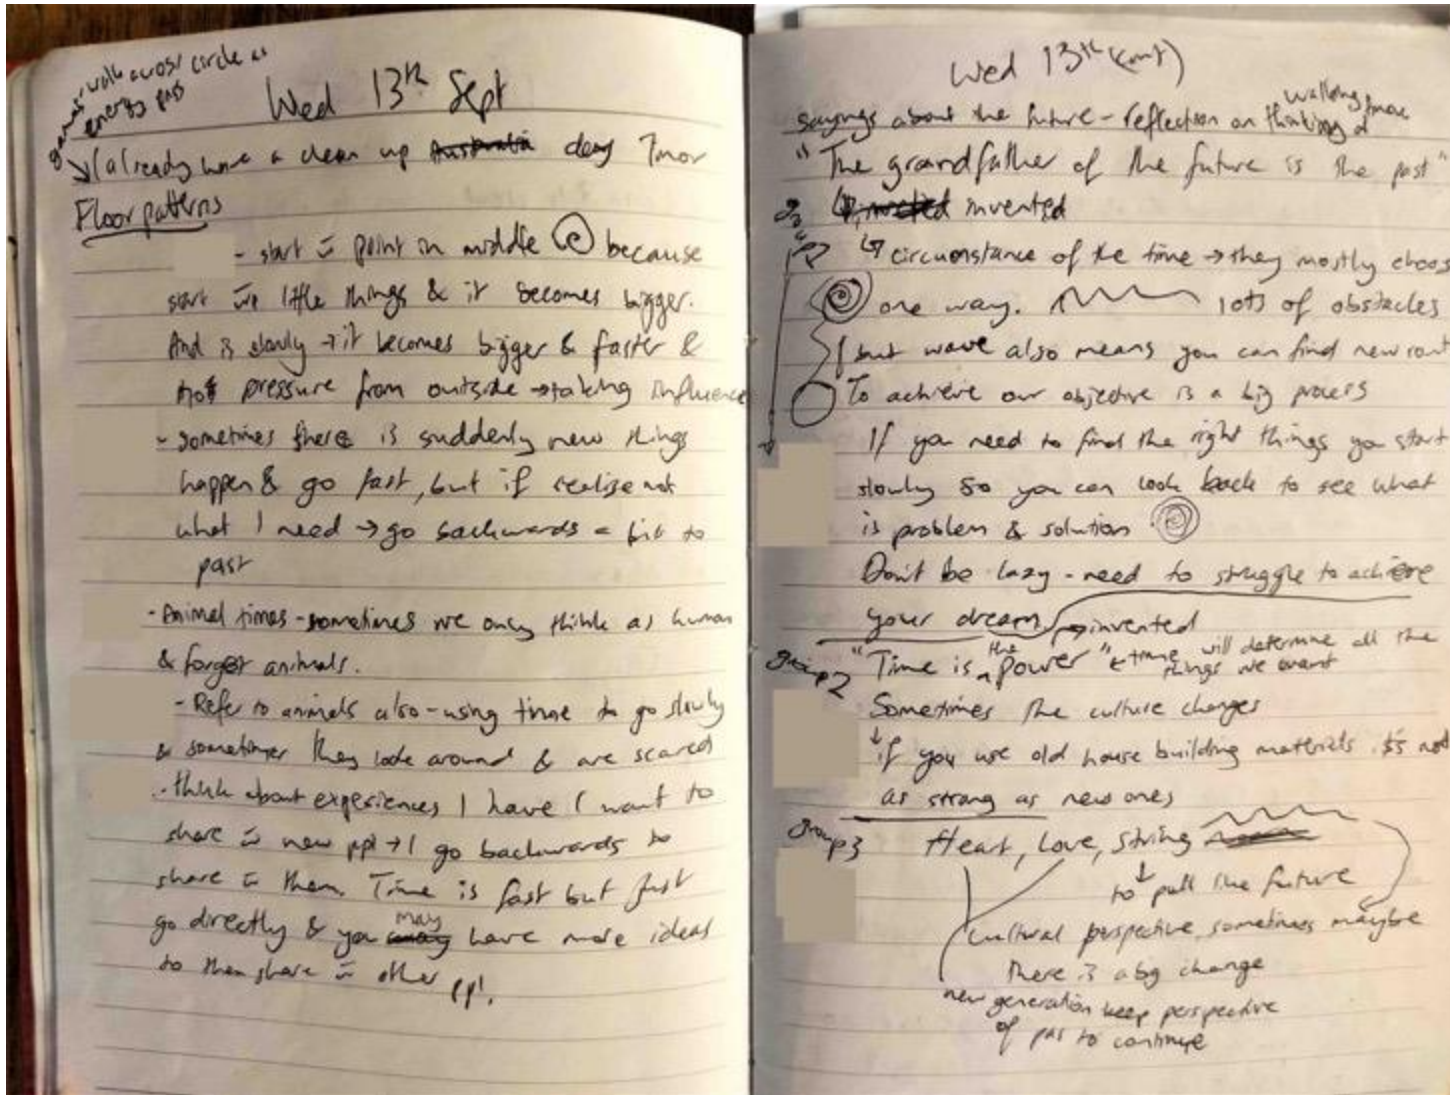 games walk across circle as
energy pass
Wed 13th Sept
(already have a clean up Australia day Tmor
Floor patterns
- start c̄ point in middle because
start c̄ little things & it becomes bigger.
And is slowly → it becomes bigger & faster &
pressure from outside → taking influence
- sometimes there is suddenly new things
happen & go fast, but if realise not
what I need → go backwards a bit to
past
- Animal times - sometimes we only think as human
& forget animals.
- Refer to animals also - using time to go slowly
& sometimes they look around & are scared
- think about experiences I have I want to
share c̄ new ppl → I go backwards to
share c̄ them. Time is fast but just
go directly & you may have more ideas
to then share c̄ other ppl.
Wed 13th (cont)
walking
sayings about the future - reflection on thinking of
"The grandfather of the future is the past"
invented
↳ circumstance of the time → they mostly choos
one way. lots of obstacles
but wave also means you can find new rout
To achieve our objective is a big process
If you need to find the right things you start
slowly so you can look back to see what
is problem & solution
Don't be lazy - need to struggle to achieve
your dream → invented
group 2 "Time is the power" ← time will determine all the
things we want
Sometimes the culture changes
↓ if you use old house building materials it's not
as strong as new ones
group 3 Heart, Love, String
↓
to pull the future
cultural perspective, sometimes maybe
there is a big change
new generation keep perspective
of pas to continue